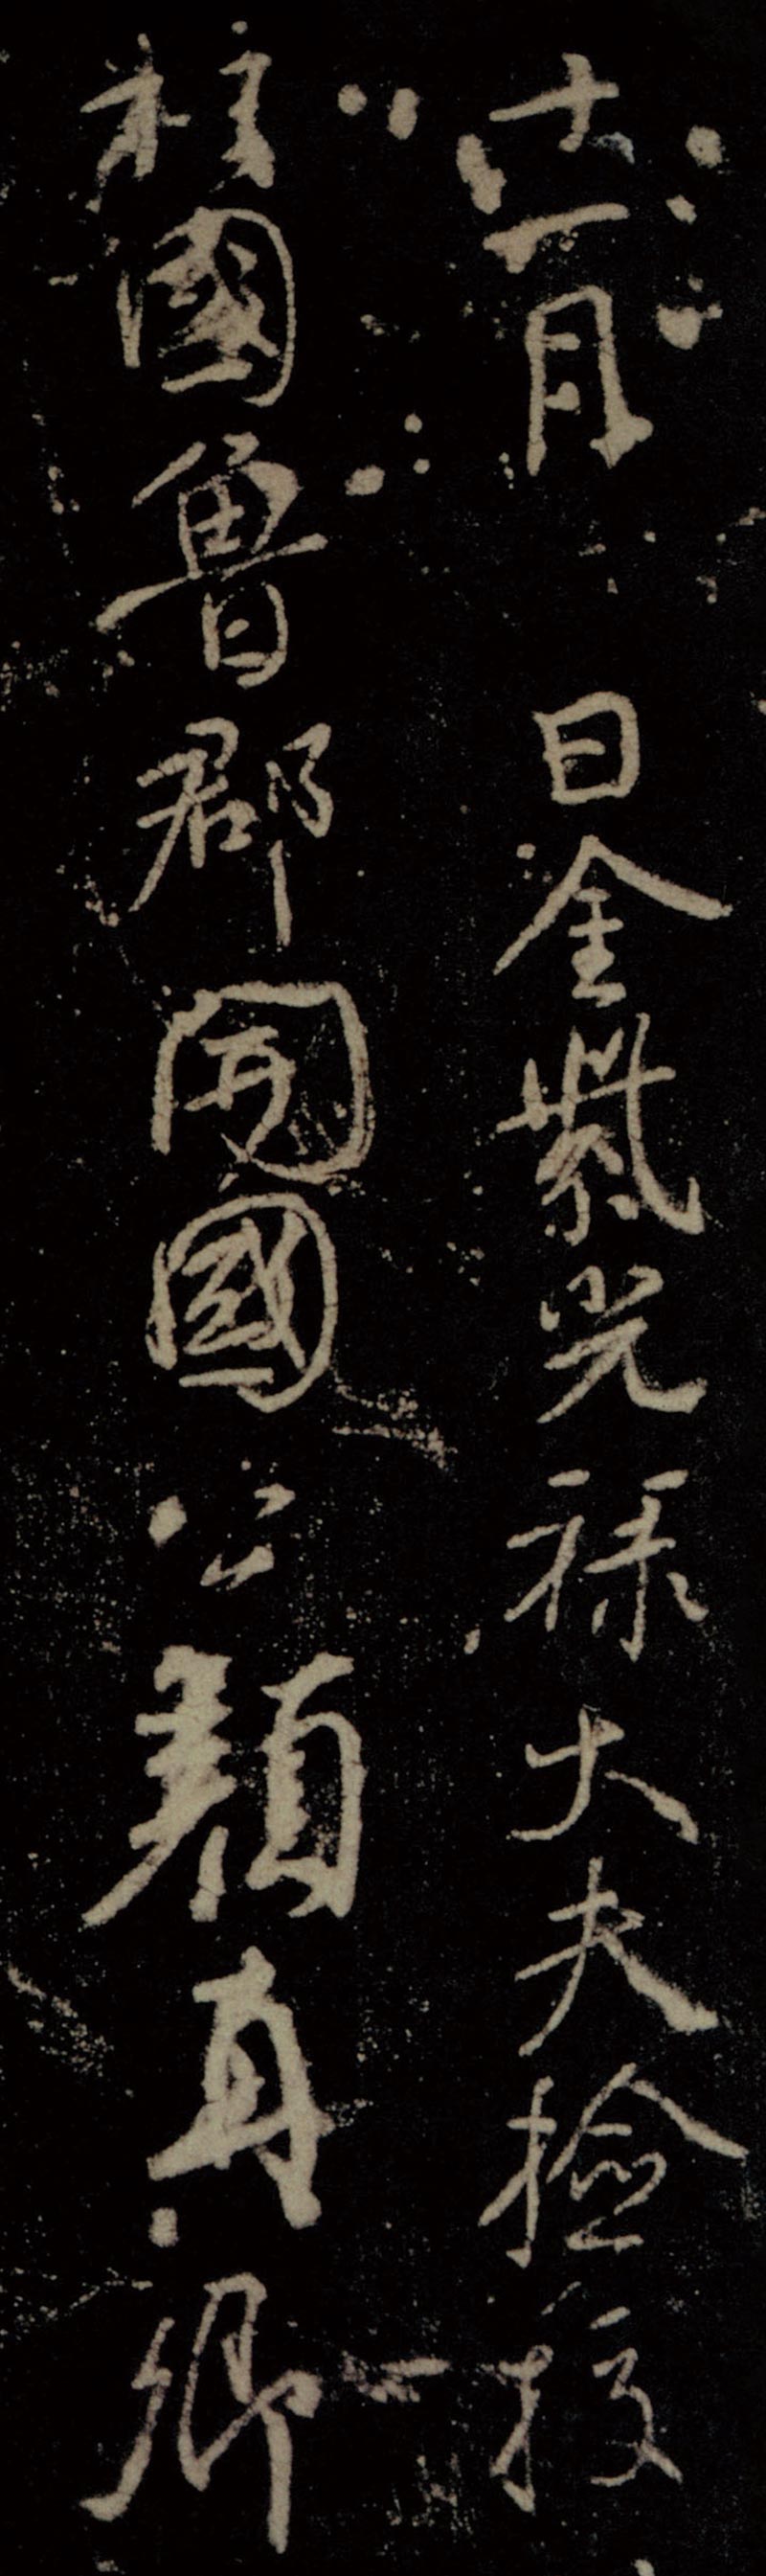 十一月 日金紫光祿大夫檢校
柱國魯郡開國公顏真卿